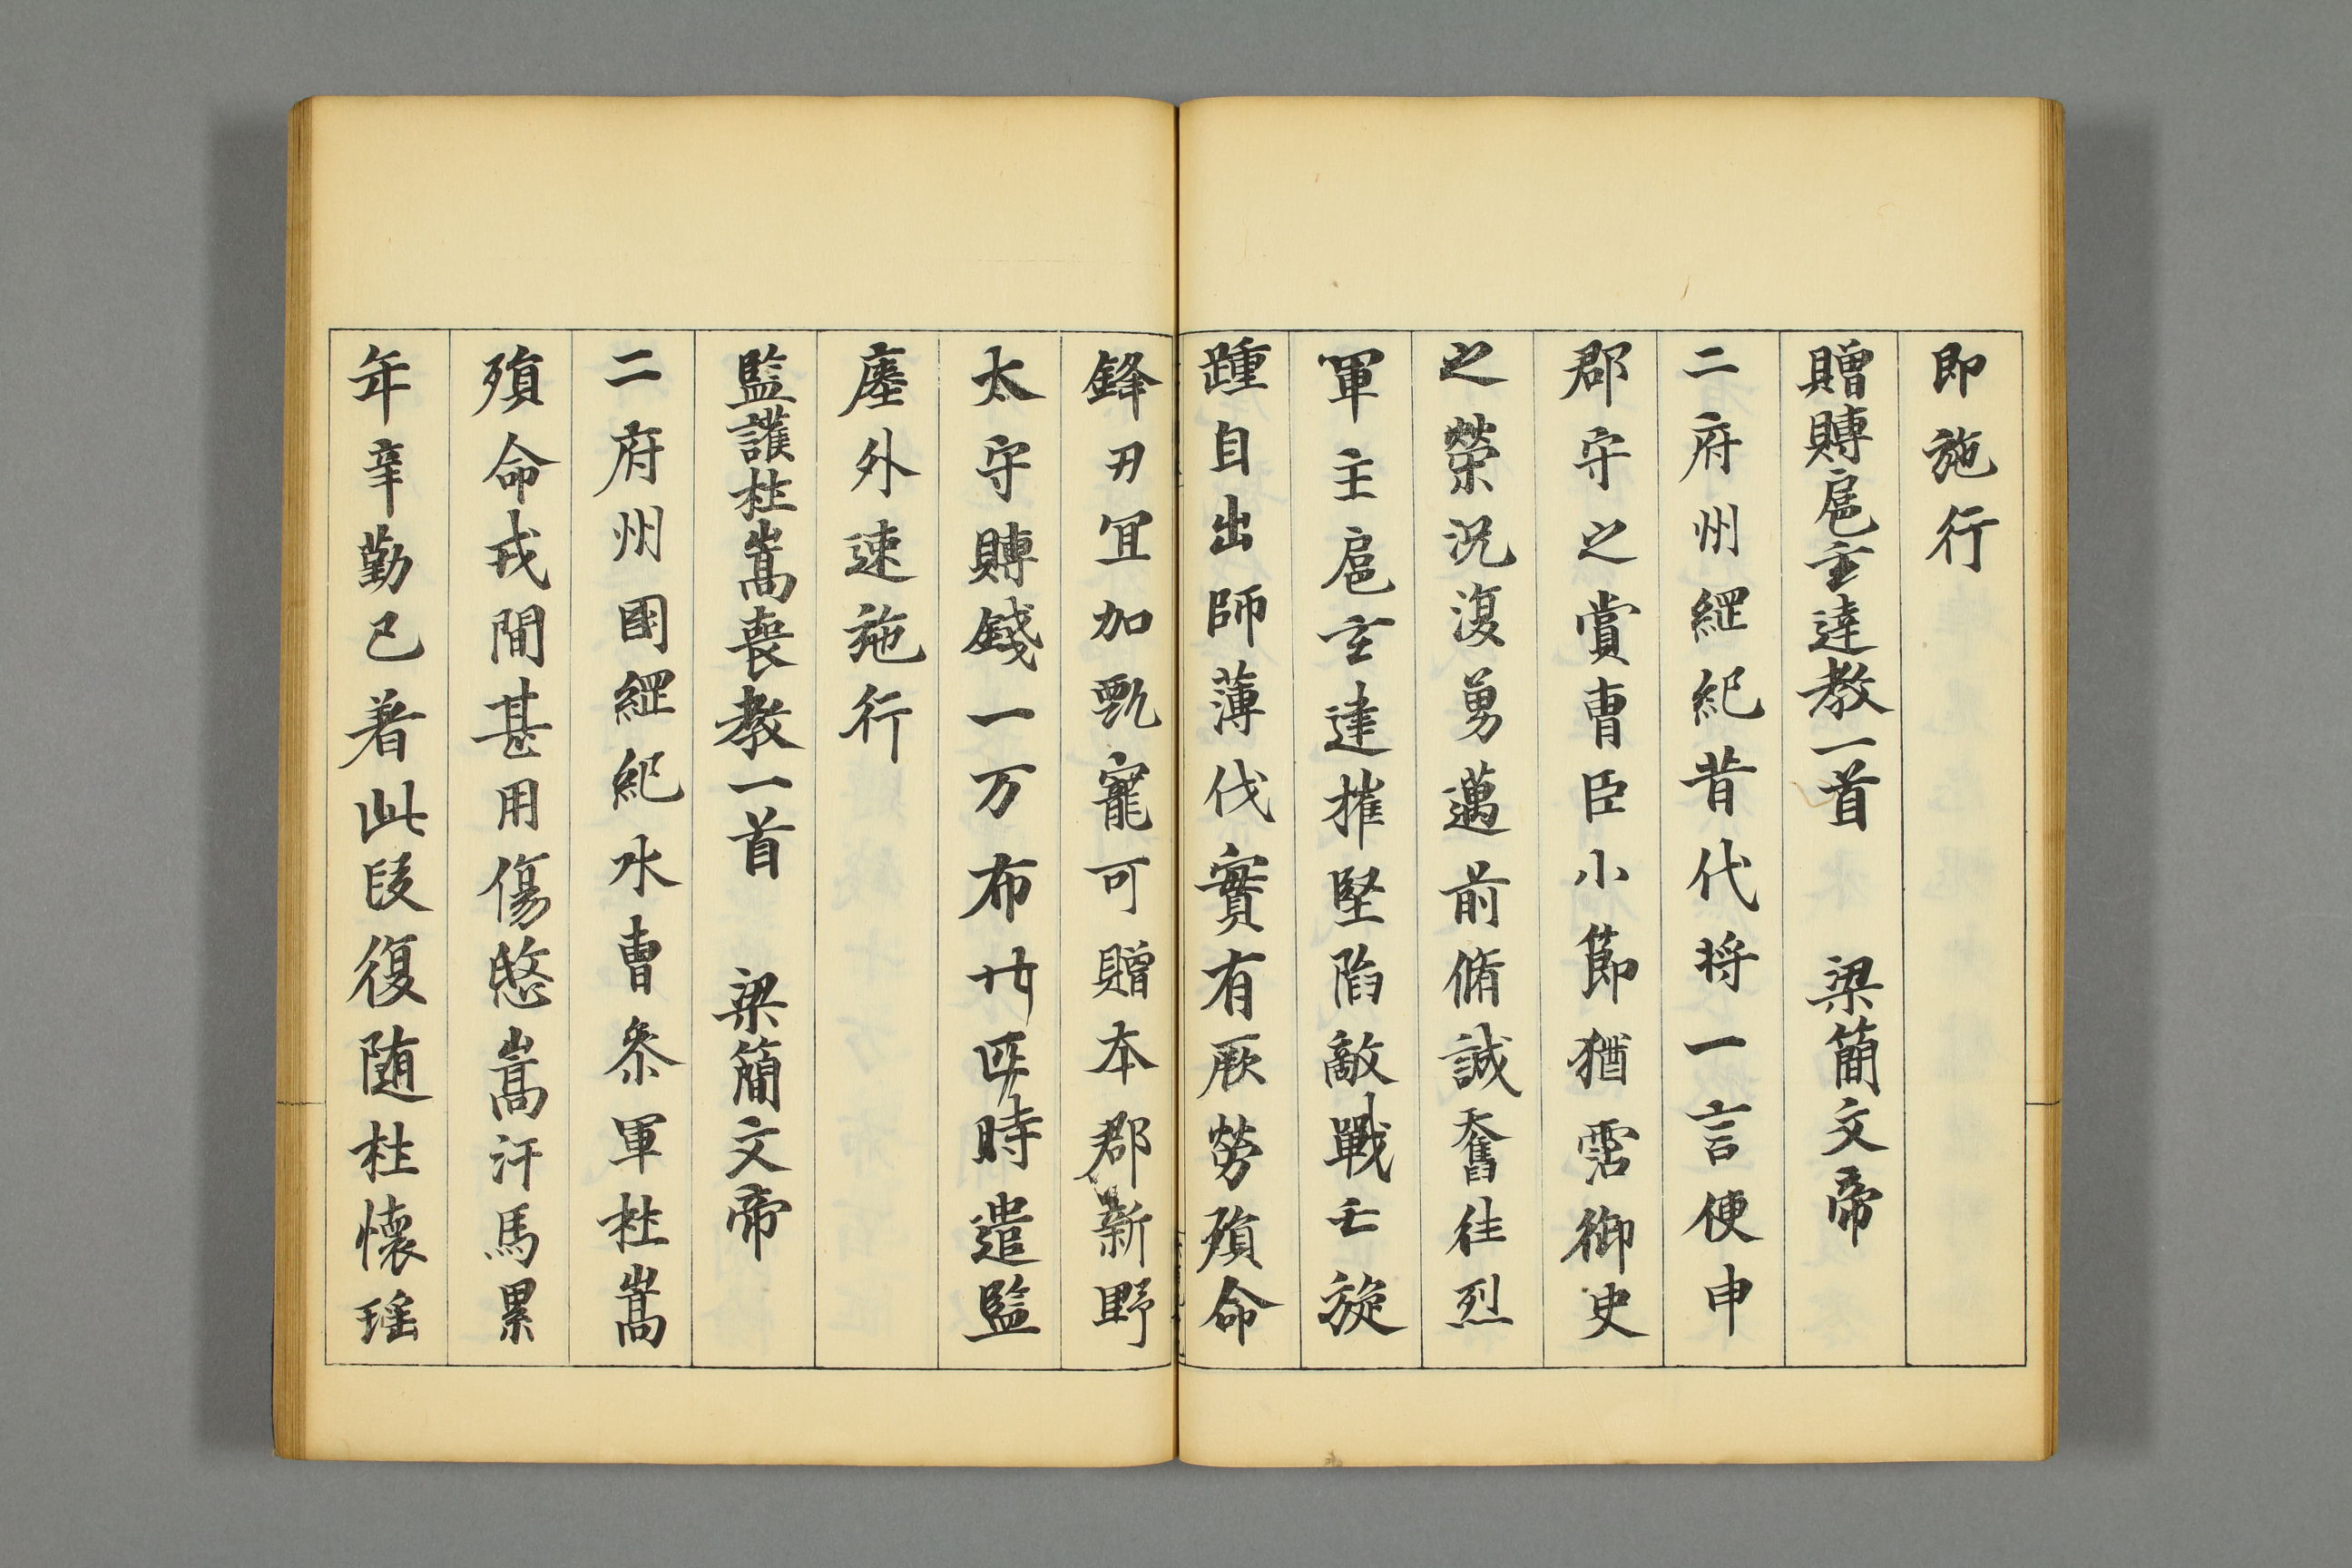 即施行
贈賻扈玄達教一首　梁簡文帝
二府州綱紀昔代将一言便申
郡守之賞曹臣小節猶霑御史
之榮況復勇邁前脩誠奮往烈
軍主扈玄達摧堅陷敵戰士旋
踵自出師薄伐實有厥勞殞命
鋒刃冝加甄寵可贈本郡新野
太守賻錢一万布廿匹時遣監
塵外速施行
監護杜嵩喪教一首　梁簡文帝
二府州國綱紀水曹叅軍杜嵩
殞命戎間甚用傷愍嵩汗馬累
年辛勤已著此段復随杜懐瑶